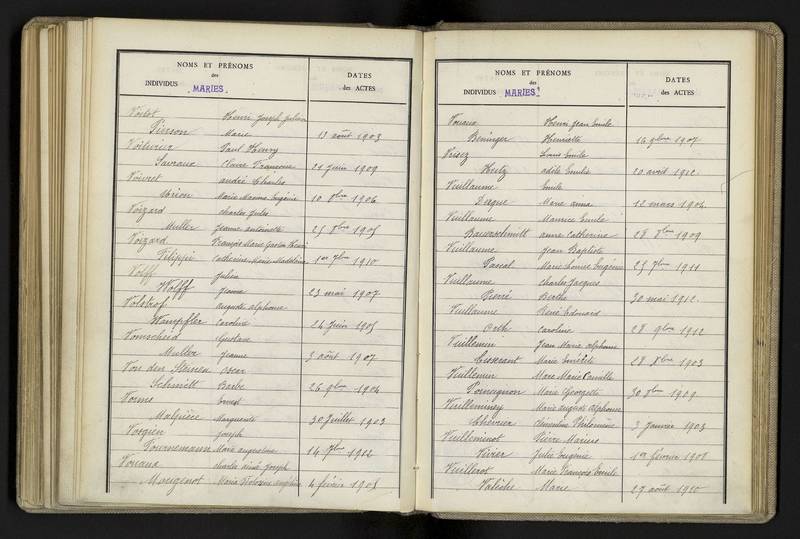 NOMS ET PRÉNOMS
des
INDIVIDUS MARIES.
DATES
des ACTES
Voitot Henri Joseph
Pierson Marie 13 août 1903
Voiturier Paul Henry
Savraux Claire Françoise 21 juin 1909
Voivret andré Charles
Marie Eugénie 10 8bre 1906
Voizard charles Jules
Muller Jeanne antoinette 25 8bre 1905
Voizard François Marie Gaston Henri
Filippi Catherine Marie Madeleine 1er 7bre 1910
Volff Julien
Wolff Jeanne 23 mai 1907
Volstrof auguste alphonse
Wampfler Caroline 24 Juin 1905
Vomscheid Gustave
Muller Jeanne 3 août 1907
Von den Steinen Oscar
Schmitt Barbe 26 9bre 1904
Vorms Ernest
Malpièce Marguerite 30 Juillet 1903
Vosgien Joseph
Tournemann Marie augustine 14 7bre 1912
Vouaux charles aimé Joseph
Mougenot Maria 4 février 1905
NOMS ET PRÉNOMS
des
INDIVIDUS MARIES.
DATES
des ACTES
Vouaux Henri Jean Emile
Beninger Henriette 16 9bre 1907
Vrisez Louis Emile
Hutz adèle Emilie 20 avril 1912
Vuillaume Emile
Dugue Marie anna 12 mars 1904
Vuillaume Maurice Emile
Bauerschmitt anna Catherine 28 8bre 1909
Vuillaume Jean Baptiste
Pascal Marie Louise Eugénie 25 9bre 1911
Vuillaume Charles Jacques
Pierré Berthe 30 mai 1912
Vuillaume René Edouard
Orth Caroline 28 9bre 1912
Vuillemin Jean Marie alphonse
Marie 28 8bre 1903
Vuillemin Marc Marie Camille
Marie Georgette 30 8bre 1909
Vuilleminey Marie auguste Alphonse
Chevrier Clémentine Philomène 3 Janvier 1903
Vuilleminot Pierre Marius
Vivier Julie Eugénie 1er février 1908
Vuillerot Marie François Emile
Marie 29 août 1910